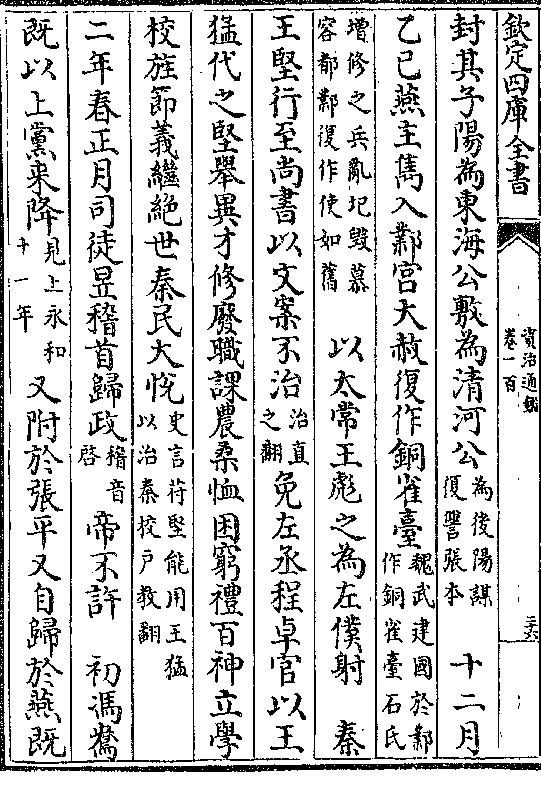 欽定四庫全書
資治通鑑
卷一百
二六
封其子陽為東海公敷為清河公為後陽謀復讐張本　十二月
乙巳燕主雋入鄴宮大赦復作銅雀臺魏武建國於鄴作銅雀臺石氏
增修之兵亂圮毀慕容都鄴復作使如舊　以太常王彪之為左僕射　秦
王堅行至尚書以文案不治治直之翻免左丞程卓官以王
猛代之堅舉異才修廢職課農桑恤困窮禮百神立學
校旌節義繼絕世秦民大悅史言苻堅能用王猛以治秦校戶教翻
二年春正月司徒昱稽首歸政稽音啓帝不許　初馮鴦
既以上黨来降見上永和十一年又附於張平又自歸於燕既